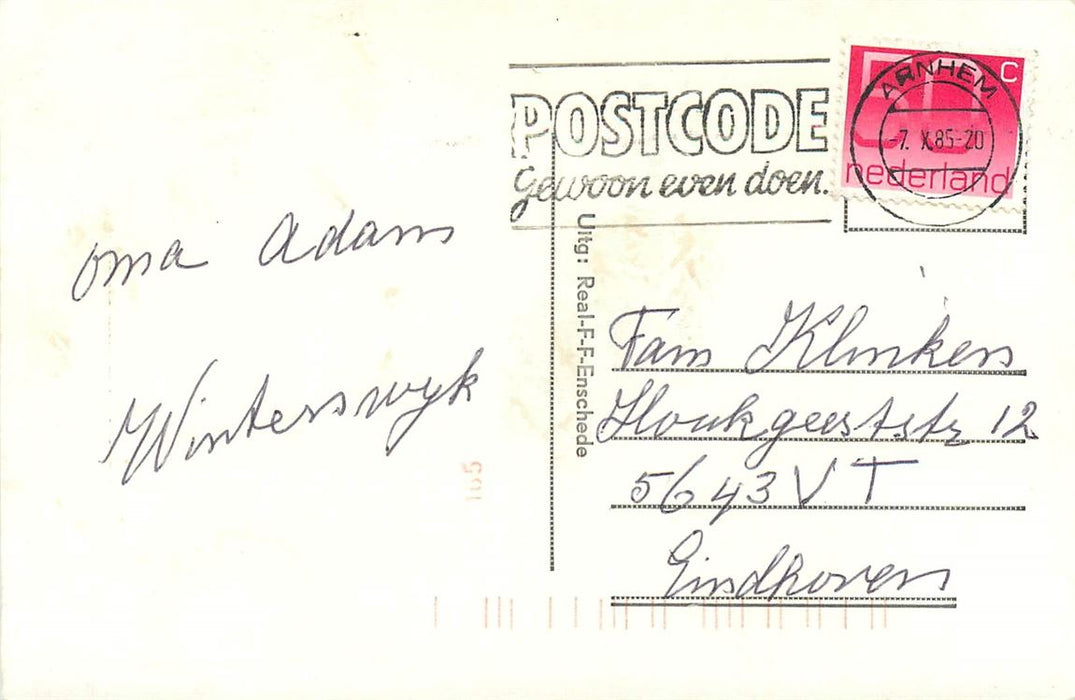 POSTCODE
Gewoon even doen.
ARNHEM
-7. X.85-20
50 c
nederland
oma Adam
Winterswyk
Uitg: Real-F-F-Enschede
Fam Klinkens
12
5643 VT
Eindhoven
165